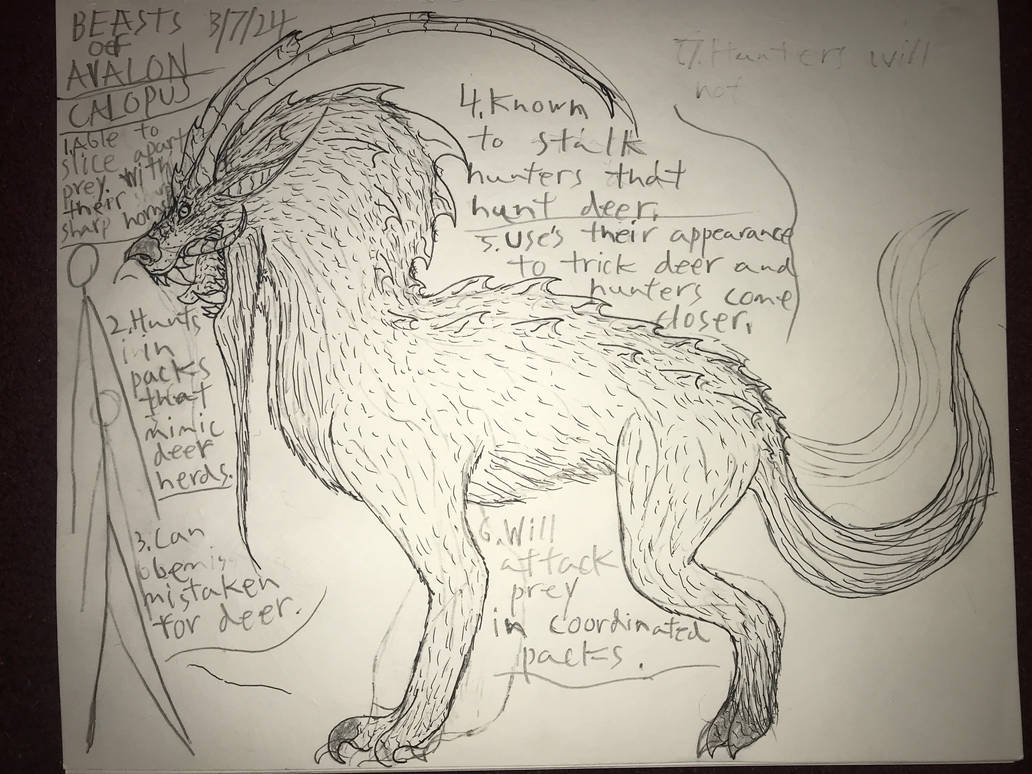 BEASTS 3/7/24
OF
AVALON
CALOPUS
1. Able to
slice apart
prey. With
their
sharp horns
2. Hunts
in
packs
that
mimic
deer
herds.
3. Can
be
mistaken
for deer.
4. Known
to stalk
hunters that
hunt deer.
5. Use's their appearance
to trick deer and
hunters come
closer.
6. Will
attack
prey
in coordinated
packs.
17. Hunters will
not